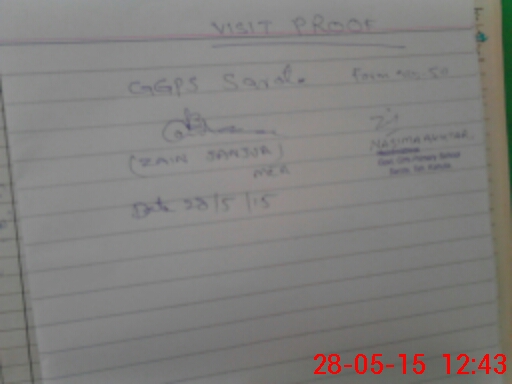 VISIT PROOF
GGPS Saral
(ZAIN JANJUA)
MEA
Date 28/5/15
NASIMA AKHTAR
Headmistress
Govt. Girls Primary School
28-05-15 12:43